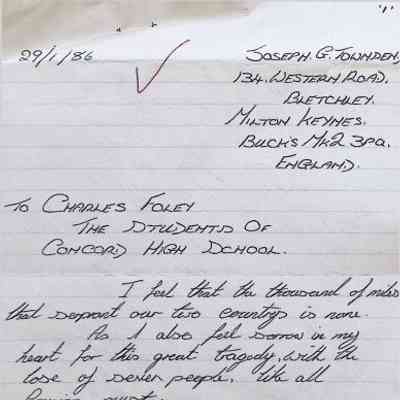 29/1/86
JOSEPH. G. TOWNDEN,
134. WESTERN ROAD.
BLETCHLEY.
MILTON KEYNES.
BUCK'S MK2 3PQ.
ENGLAND.
TO CHARLES FOLEY
THE STUDENTS OF
CONCORD HIGH SCHOOL.
I feel that the thousand of miles
that seprart our two countrys is none.
As I also feel sorrow in my
heart for this great tragedy, with the
lose of seven people. We all